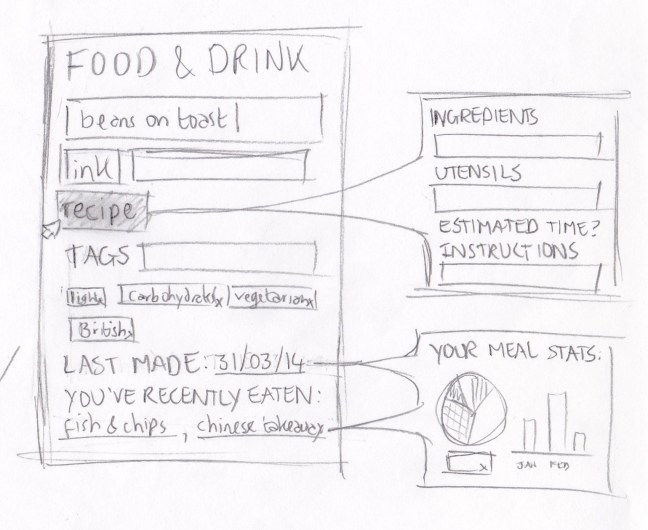 FOOD & DRINK
beans on toast
link
recipe
TAGS
light x carbohydrates x vegetarian x
British x
LAST MADE: 31/03/14
YOU'VE RECENTLY EATEN:
fish & chips, chinese takeaway
INGREDIENTS
UTENSILS
ESTIMATED TIME?
INSTRUCTIONS
YOUR MEAL STATS.
x
JAN FEB